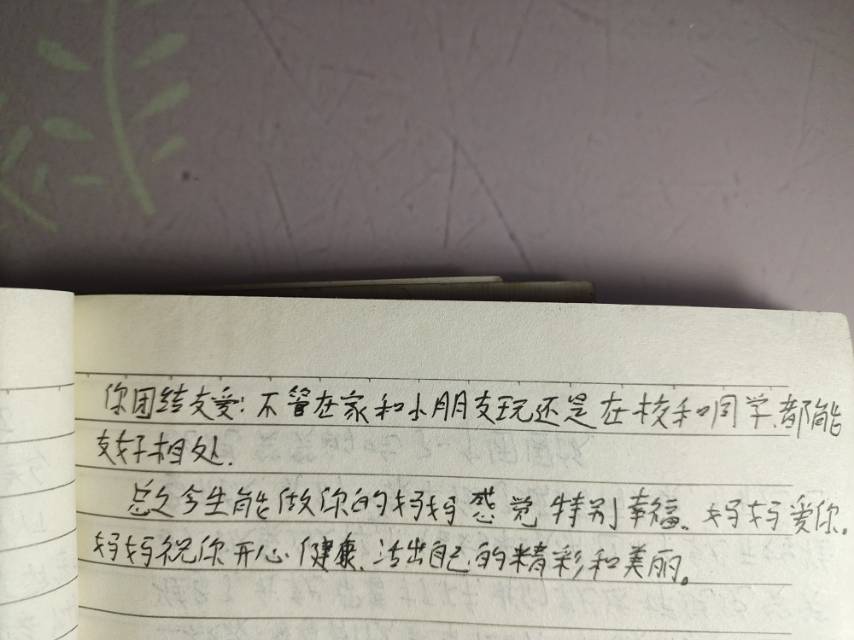 你团结友爱：不管在家和小朋友玩还是在校和同学都能
友好相处.
总之今生能做你的妈妈感觉特别幸福、妈妈爱你.
妈妈祝你开心健康、活出自己的精彩和美丽。